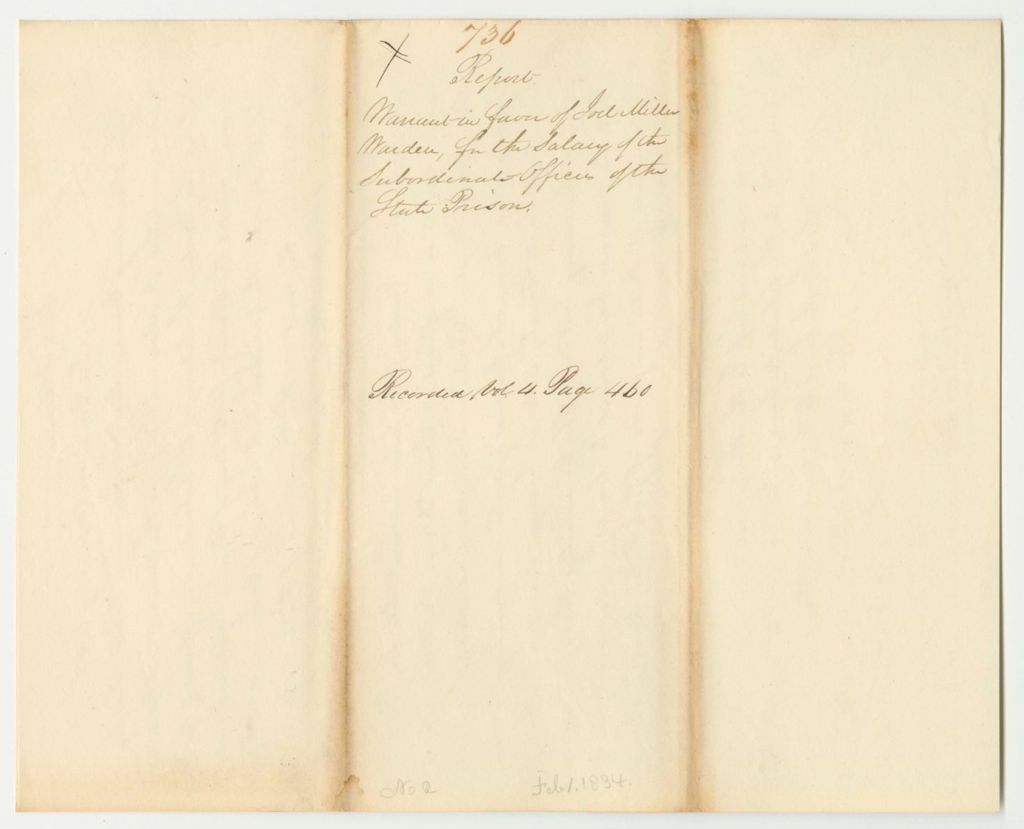 736
Report
Warrant in favor of Joel Miller
Warden, for the Salary of the
Subordinate Officers of the
State Prison.
Recorded Vol. 4. Page 460
No 2 Feb 1. 1834.